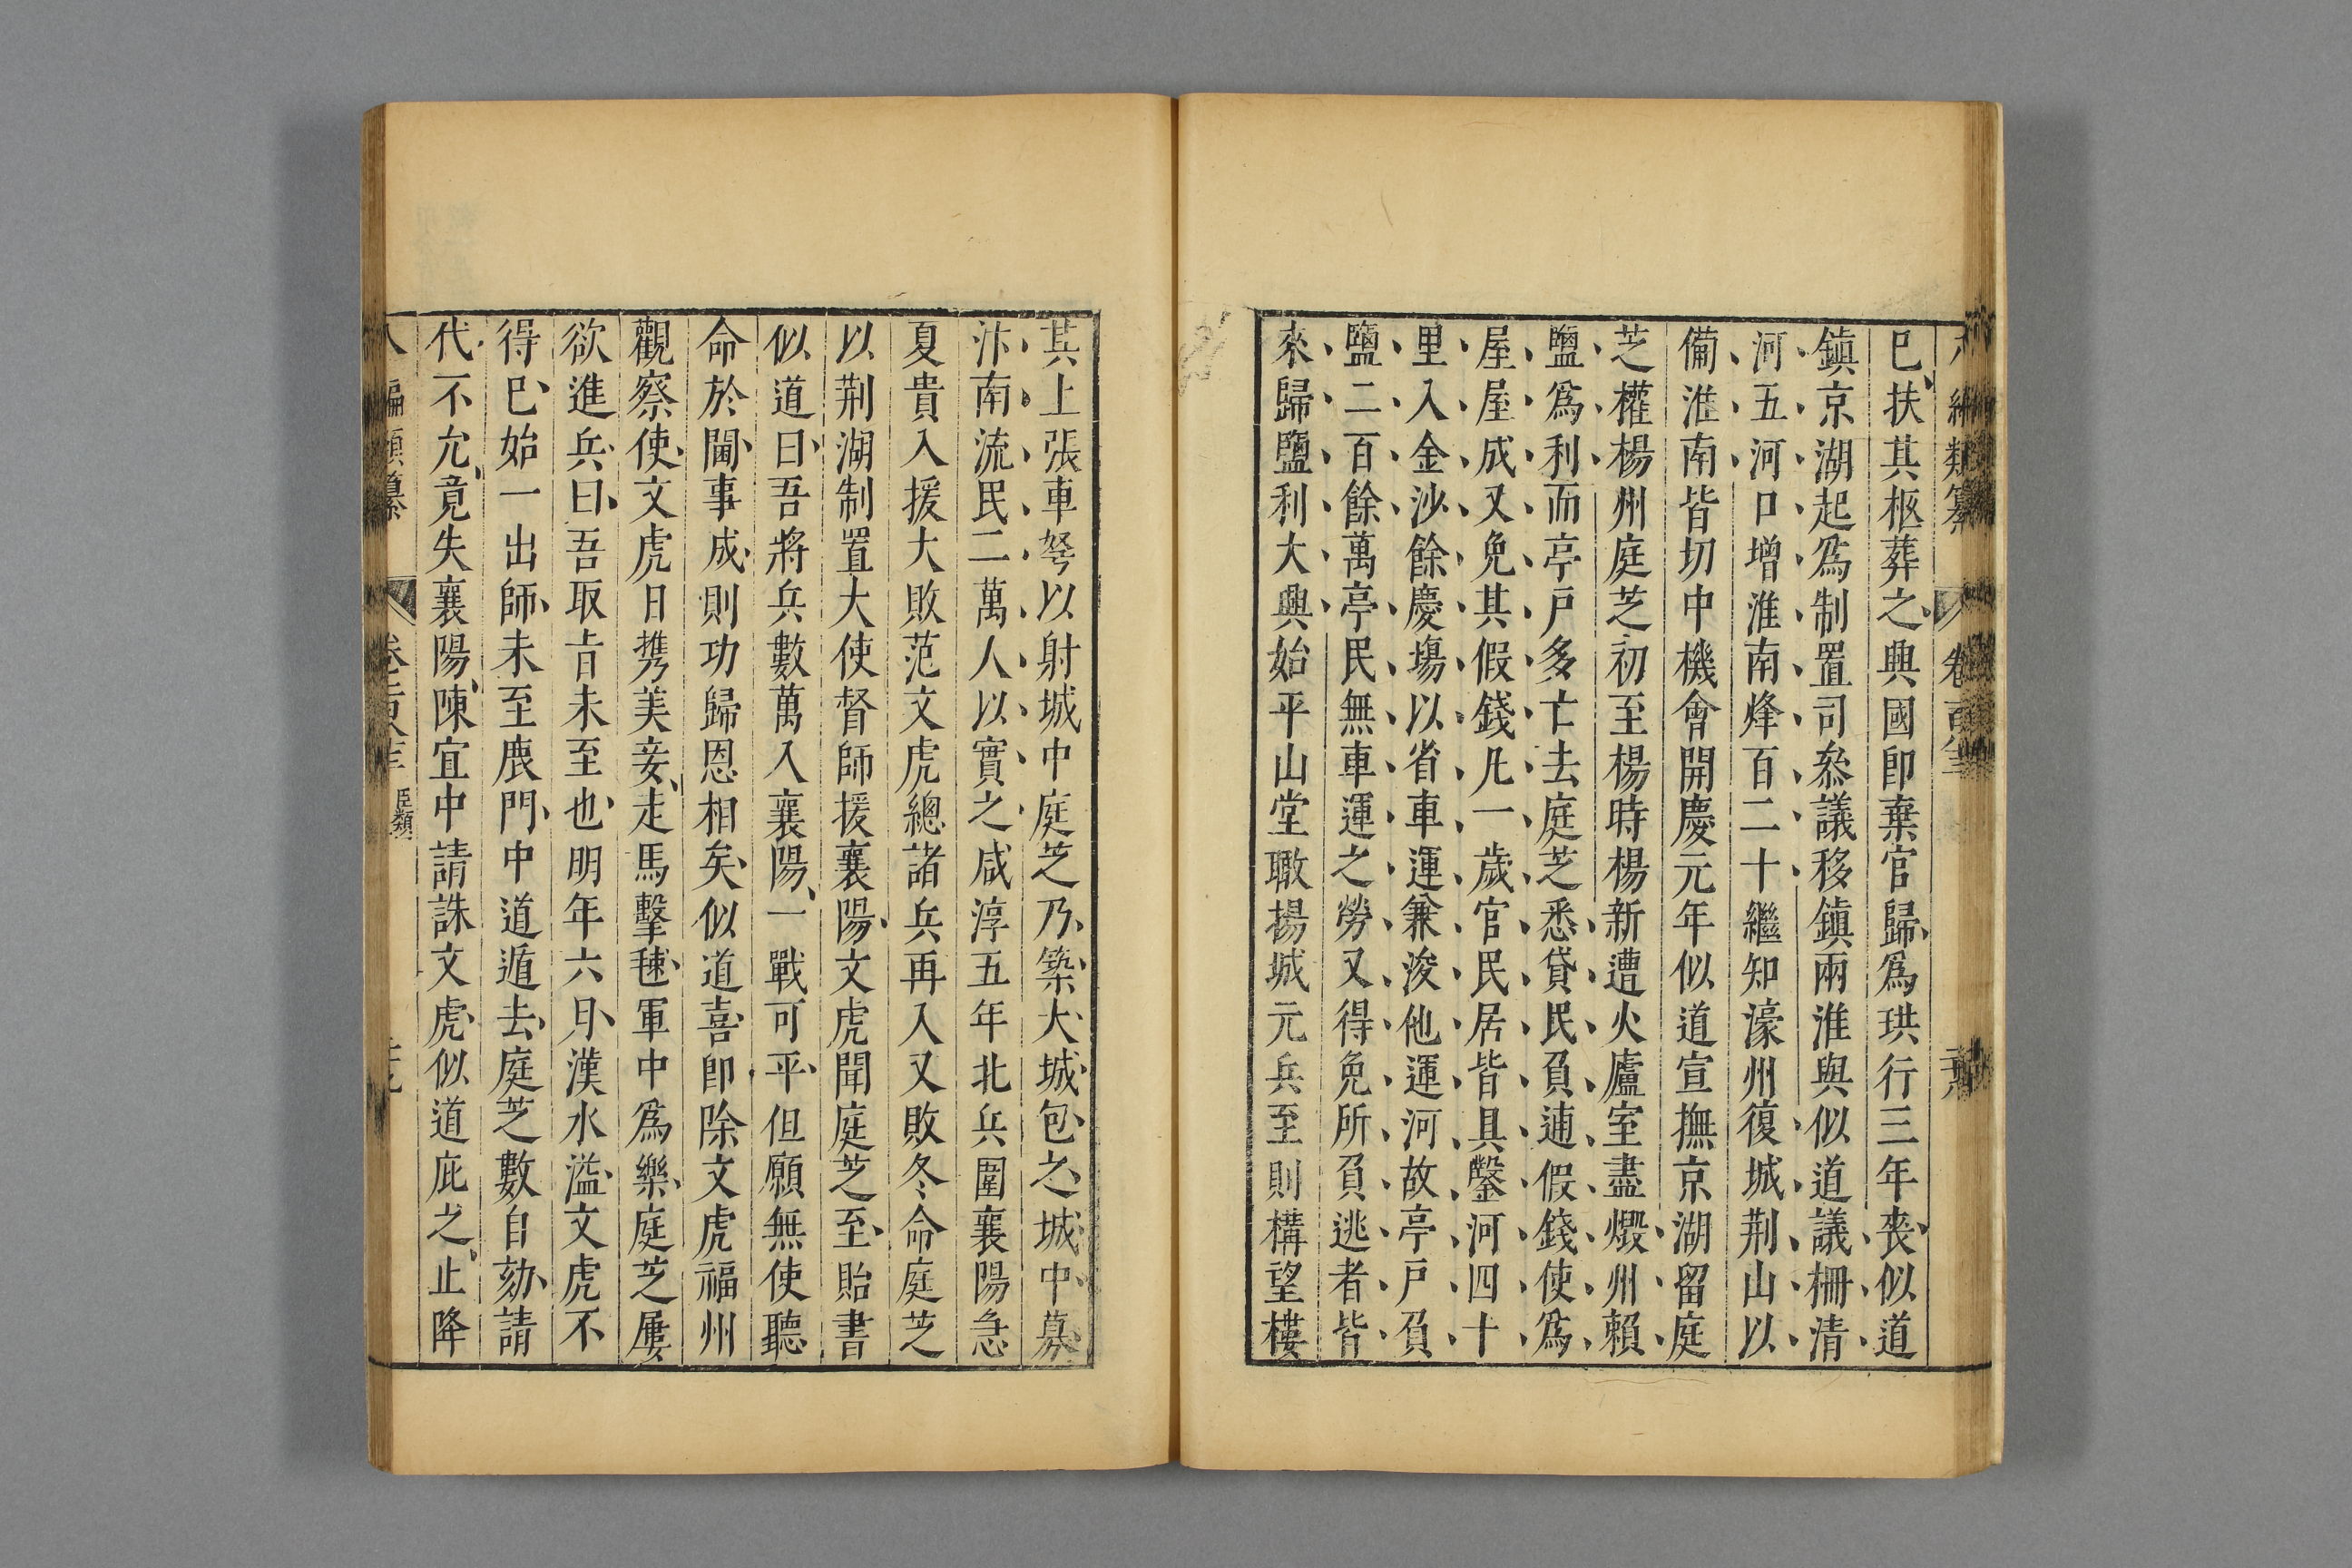 八編類纂 卷百
巳扶其柩葬之興國卽棄官歸爲珙行三年喪似道
鎮京湖起爲制置司叅議移鎮兩淮與似道議柵清
河五河口增淮南烽百二十繼知濠州復城荆山以
備淮南皆切中機會開慶元年似道宣撫京湖留庭
芝權楊州庭芝初至楊時楊新遭火廬室盡燬州賴
鹽爲利而亭戸多亡去庭芝悉貸民負逋假錢使爲
屋屋成又免其假錢凡一歲官民居皆具鑿河四十
里入金沙餘慶場以省車運兼浚他運河故亭戸負
鹽二百餘萬亭民無車運之勞又得免所負逃者皆
來歸鹽利大興始平山堂瞰揚城元兵至則構望樓
其上張車弩以射城中庭芝乃築大城包之城中募
汴南流民二萬人以實之咸淳五年北兵圍襄陽急
夏貴入援大敗范文虎總諸兵再入又敗冬命庭芝
以荆湖制置大使督師援襄陽文虎聞庭芝至貽書
似道曰吾將兵數萬入襄陽一戰可平但願無使聽
命於閫事成則功歸恩相矣似道喜卽除文虎福州
觀察使文虎日携美妾走馬擊毬軍中爲樂庭芝屢
欲進兵曰吾取旨未至也明年六月漢水溢文虎不
得巳始一出師未至鹿門中道遁去庭芝數自劾請
代不允竟失襄陽陳宜中請誅文虎似道庇之止降
八編類纂 卷 臣類